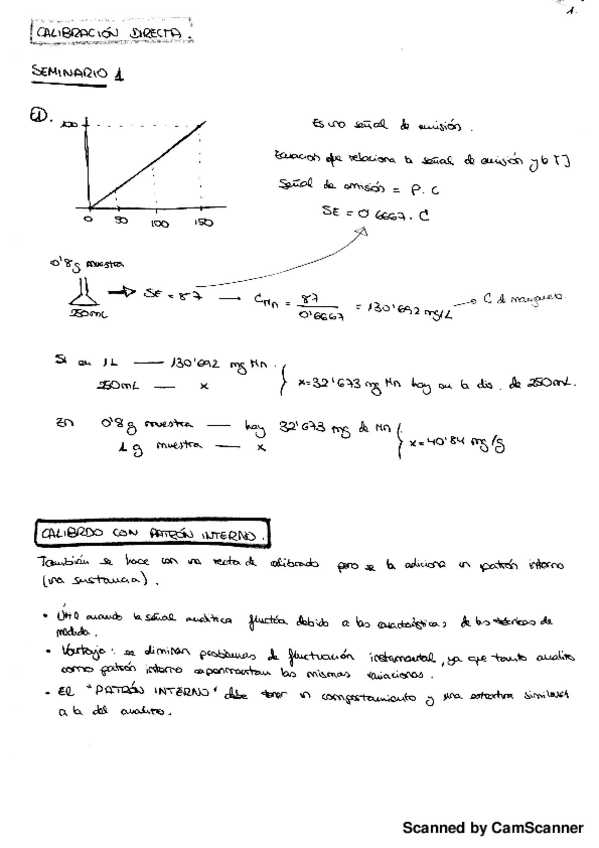 1.
CALIBRACIÓN DIRECTA.
SEMINARIO 1
①.
100
0 50 100 150
Es una señal de emisión.
Ecuación que relaciona la señal de emisión y la []
Señal de emisión = P. C
SE = 0'6667. C
0'8g muestra
250mL
SE = 87 → C Mn = 87 / 0'6667 = 130'692 mg/L → C de manganeso
Si en 1L — 130'692 mg Mn.
250mL — x
x=32'673 mg Mn hay en la dis. de 250mL.
En 0'8g muestra — hay 32'673 mg de Mn
1g muestra — x
x=40'84 mg/g
CALIBRDO CON PATRÓN INTERNO.
También se hace con una recta de calibrado pero se la adiciona un patrón interno
(una sustancia).
• Útil cuando la señal analítica fluctúa debido a las características de las técnicas de
medida.
• Ventaja: se eliminan problemas de fluctuación instrumental, ya que tanto analito
como patrón interno experimentan las mismas variaciones.
• El "PATRÓN INTERNO" debe tener un comportamiento y una estructura similares
a la del analito.
Scanned by CamScanner